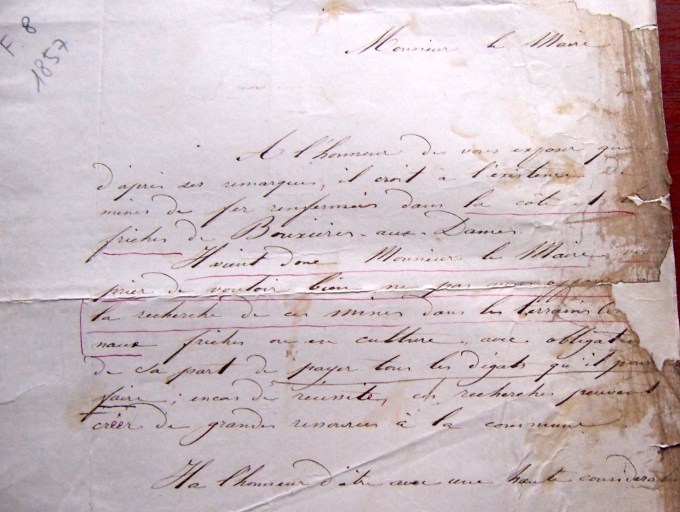 F. 8
1857
Monsieur le Maire
A l'honneur de vous exposer que
d'après ses remarques, il croit à l'existence de
mines de fer renfermées dans la côte et
friches de Bouxières-aux-Dames
Il vient donc Monsieur le Maire
prier de vouloir bien ne pas vous
la recherche de ces mines dans les terrains
naux friches ou en culture, avec obligat
de sa part de payer tous les dégats qu'il pour
faire; en cas de réussite, ces recherches peuvent
créer de grandes ressources à la commune
Il a l'honneur d'être avec une haute considérati